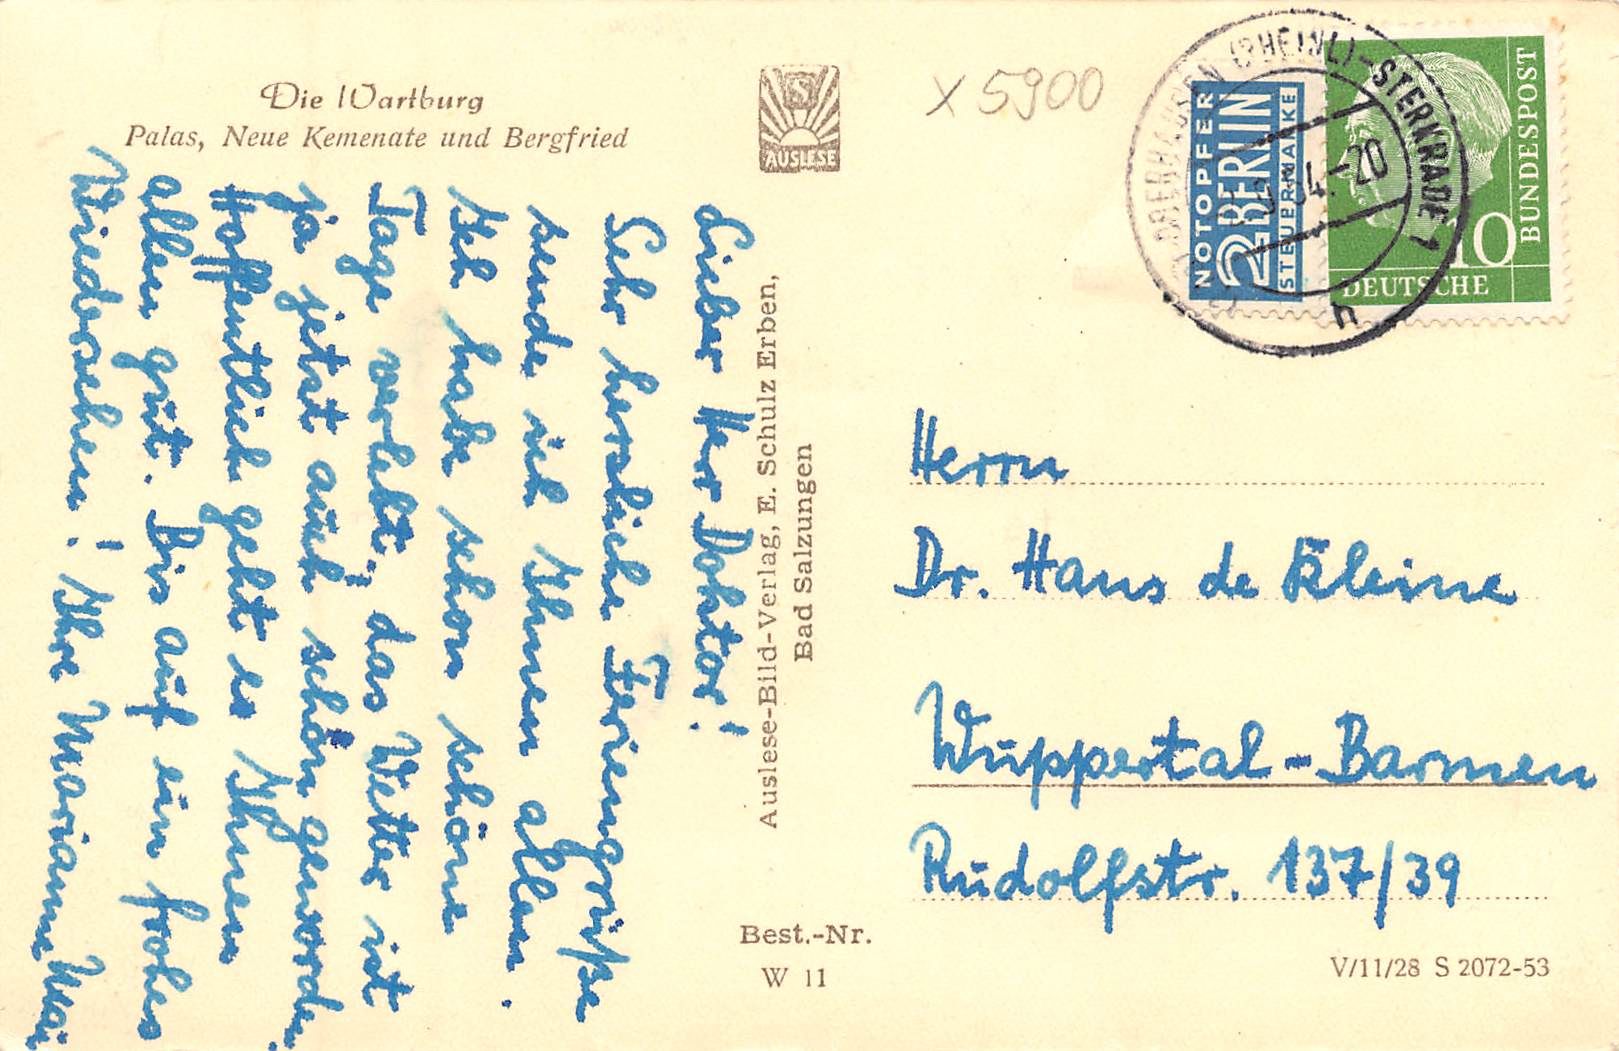 Die Wartburg
Palas, Neue Kemenate und Bergfried
S
AUSLESE
x 5900
OBERHAUSEN (RHEINL)-STERKRADE 1
54.-20
h
NOTOPFER
2 BERLIN
STEUERMARKE
10
DEUTSCHE
BUNDESPOST
Lieber Herr Doktor!
Sehr herzliche Feriengrüße
sende ich Ihnen allen.
Ich habe schon schöne
Tage verlebt; das Wetter ist
ja jetzt auch schön geworden.
Hoffentlich geht es Ihnen
allen gut. Bis auf ein frohes
Wiedersehen! Ihre Marianne
Auslese-Bild-Verlag, E. Schulz Erben,
Bad Salzungen
Best.-Nr.
W 11
Herrn
Dr. Hans de Kleine
Wuppertal-Barmen
Rudolfstr. 137/39
V/11/28 S 2072-53